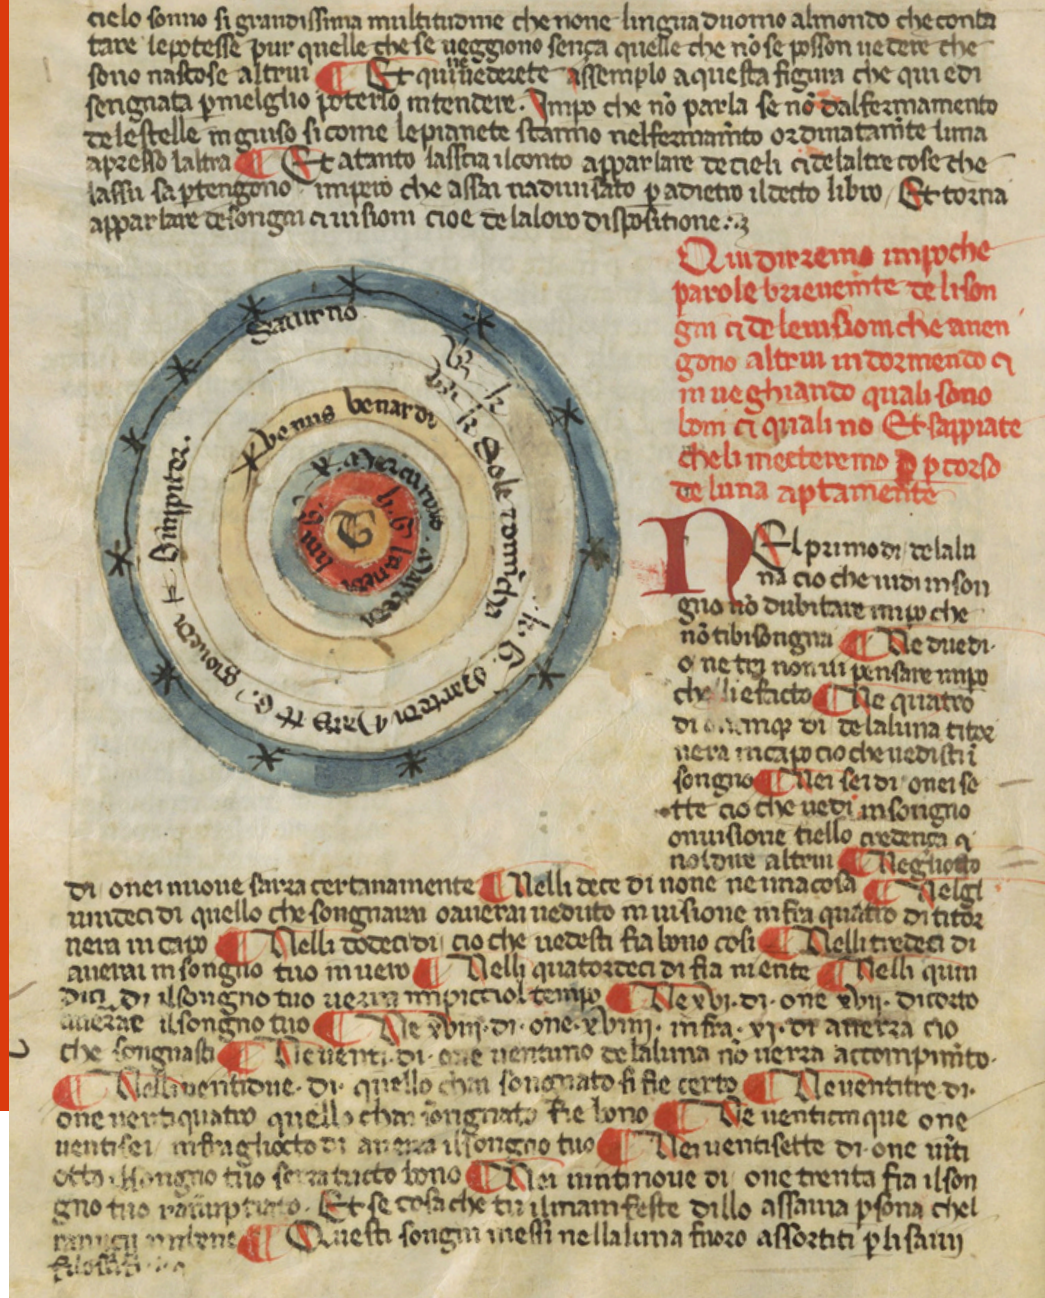 cielo sonno si grandissima multitudine che none lingua duomo almondo che conta
tare lepotesse pur quelle che se veggiono sença quelle che nō se posson vedere che
sono nascose altrui ¶ Et qui vederete assemplo aquesta figura che qui e di
sengnata p melglio poterlo intendere. Impo che nō parla se nō dal fermamento
de le stelle in giuso si come le pianete stanno nel fermam̄to ordinatam̄te luna
apresso laltra ¶ Et atanto lasscia il conto apparlare de cieli ci de laltre cose che
lassu sa ptengono impero che assai na divisato p adietro il decto libro Et torna
apparlare de songni ci visioni cioe de la loro dispositione
Saturno
Iuppiter.
giovedi
Martedi Mars
Sole domīcha
benus benardi
Mercurio
lunedi
T
Qui dirremo impo che
parole brievem̄te de li son
gni ci de le visioni che aven
gono altrui in dormendo ci
in veghiando quali sono
boni ci quali no Et sappiate
che li mecteremo p corso
de luna aptamente
NEl primo di de la lu
na cio che vidi in son
gno nō dubitare impo che
nō ti bisongna ¶ Ne due di
o ne tre non vi pensare impo
che li efacto ¶ Ne quatro
di di de la luna ti tor
nera in capo cio che vedisti ī
songno ¶ Nei sei di o nei se
tte cio che vedi in songno
o in visione tiello credença
noi dire altrui ¶ Negliotto
di o nei nuove sarra certanamente ¶ Nelli dece di none neuna cosa ¶ Nelgl
undeci di quello che songnarai o averai veduto in visione infra quatro di ti tor
nera in capo ¶ Nelli dodeci di cio che vedesti fia bono cosi ¶ Nelli tredeci di
averai in songno tuo in vero ¶ Nelli quatordeci di fia niente ¶ Nelli quin
dici di il songno tuo verra in picciol tempo ¶ Ne xvi. di. o ne xvii. di corto
averae il songno tuo ¶ Ne xviii. di. o ne. xviiii. infra. xi. di averra cio
che songnasti ¶ Ne venti. di. o ne ventuno de la luna nō verra a compim̄to.
¶ Nelli ventidue. di. quello chai songnato si fie certo ¶ Ne ventitre di.
o ne ventiquatro quello chai songnato fie bono ¶ Ne venticinque o ne
ventisei infra gliocto di averra il songno tuo ¶ Nei ventisette di o ne vīti
otto il songno tuo serra tucto bono ¶ Nei vintinove di o ne trenta fia il son
gno tuo Et se cosa che tu il manifeste dillo assavia psona chel
bene ¶ Questi songni messi nella luna fuoro assortiti p li savii
filosofi